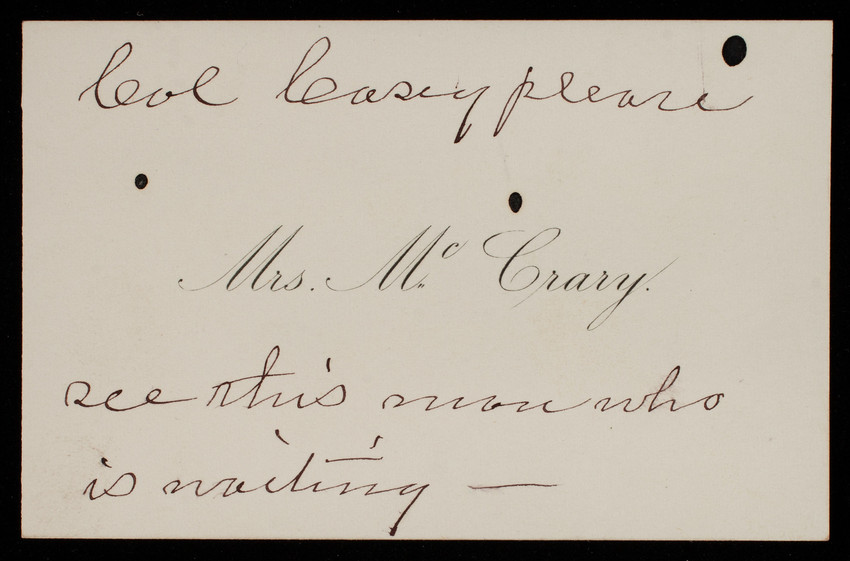 Col Casey please
Mrs. Mc Crary.
see this man who
is waiting —